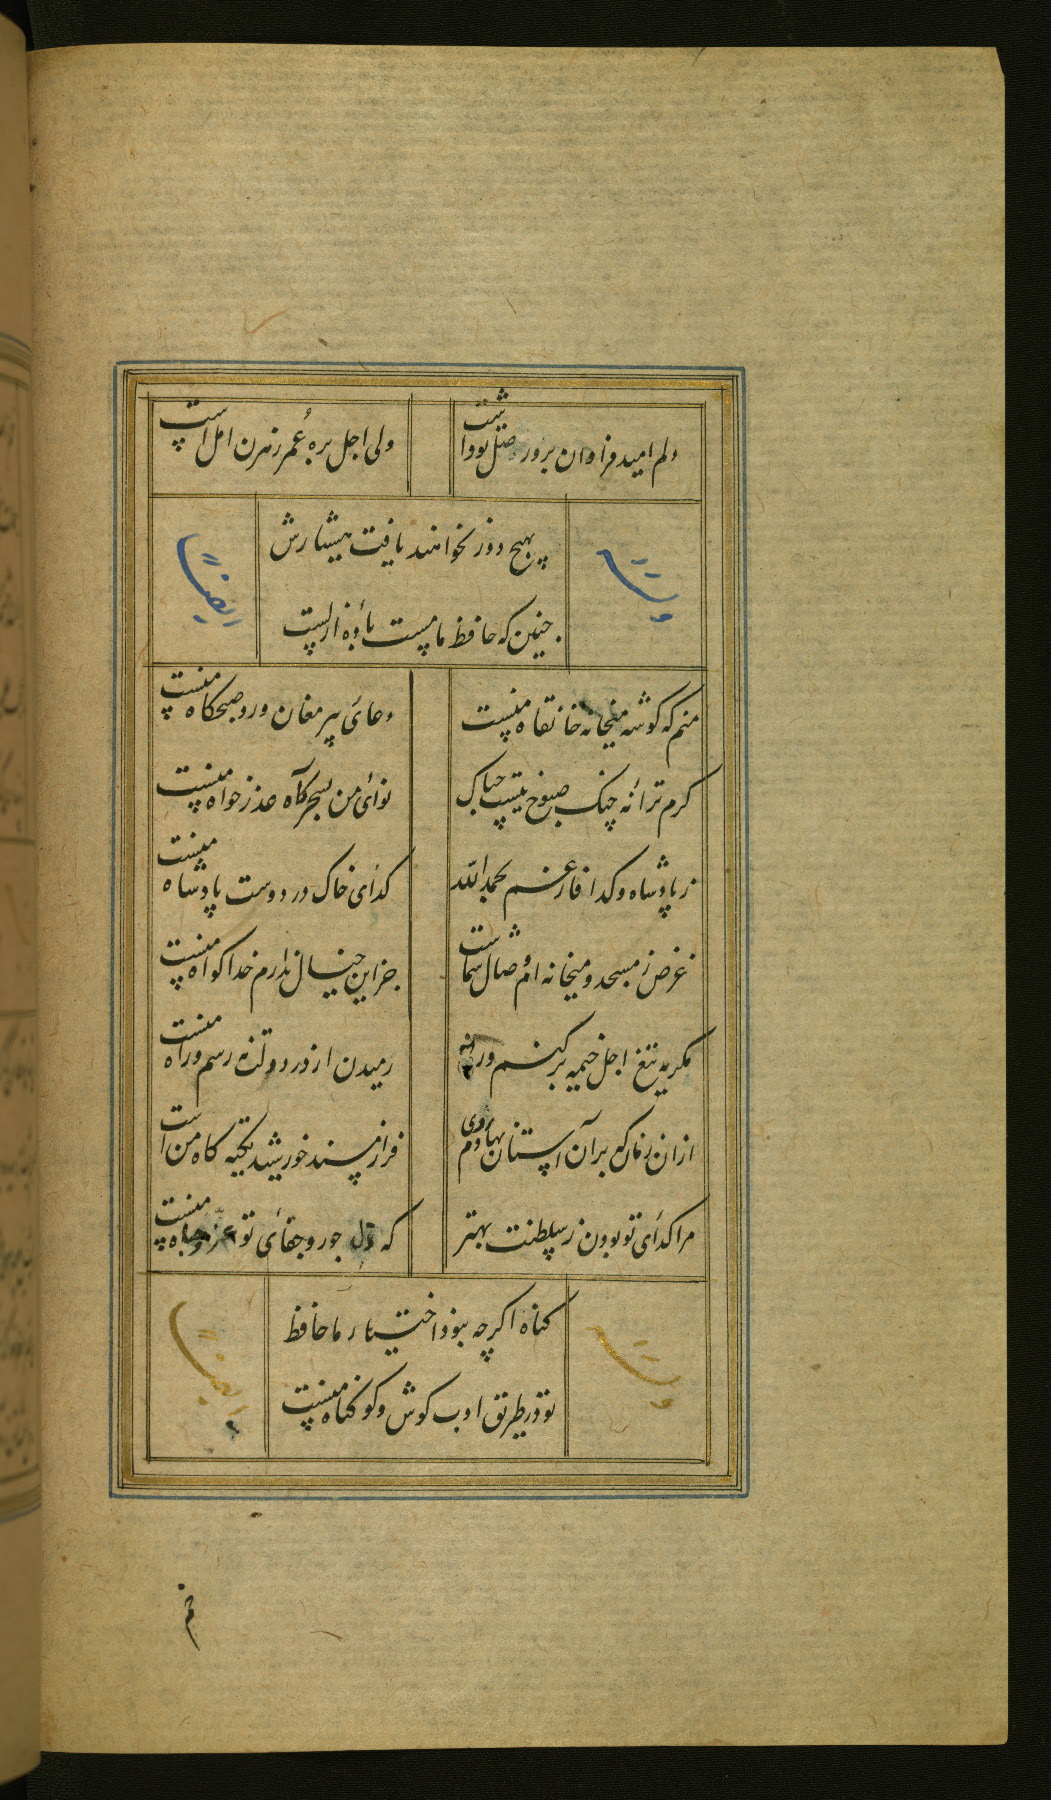 دلم امید فراوان بروز وصل تو داشت
ولی اجل بره عمر رهزن امل است
بهیچ دور نخواهند یافت هیشارش
چنین که حافظ ما مست باده ازلست
وله
ایضا
منم که گوشه میخانه خانقاه منست
دعای پیر مغان ورد صبحگاه منست
گرم ترانه چنگ صبوح نیست چه باک
نوای من بسحر آه عذر خواه منست
ز پادشاه و گدا فارغم بحمد الله
گدای خاک در دوست پادشاه منست
غرض ز مسجد و میخانه ام وصال شماست
جز این خیال ندارم خدا گواه منست
مگر به تیغ اجل خیمه بر کنم ورنه
رمیدن از در دولت نه رسم و راه منست
از ان زمان که بر آن آستان نهادم روی
فراز مسند خورشید تکیه گاه من است
مرا گدای تو بودن ز سلطنت بهتر
که ذل جور و جفای تو عز و جاه منست
گناه اگر چه نبود اختیار ما حافظ
تو در طریق ادب کوش و گو گناه منست
وله
ایضا
خم